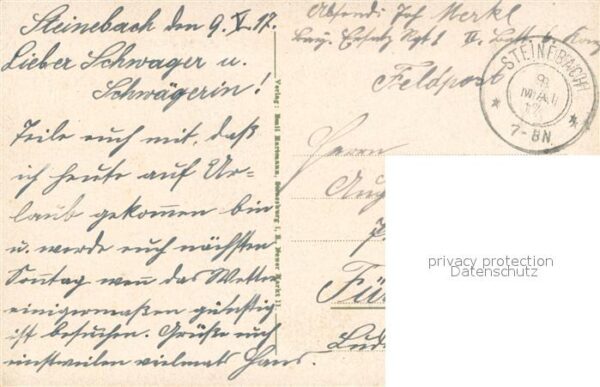 Steinebach den 9. V. 17.
Lieber Schwager u.
Schwägerin!
Teile euch mit, daß
ich heute auf Ur-
laub gekommen bin
u. werde euch nächsten
Sonntag wenn das Wetter
einigermaßen günstig
ist besuchen. Grüße euch
einstweilen vielmals Hans.
Verlag: Emil Hartmann, Strassburg i. E., Neuer Markt 11.
Absend: Merkl
Feldpost
STEINEBACH
9
MAI
17
7-8N.
Herrn
Aug
Für
privacy protection
Datenschutz